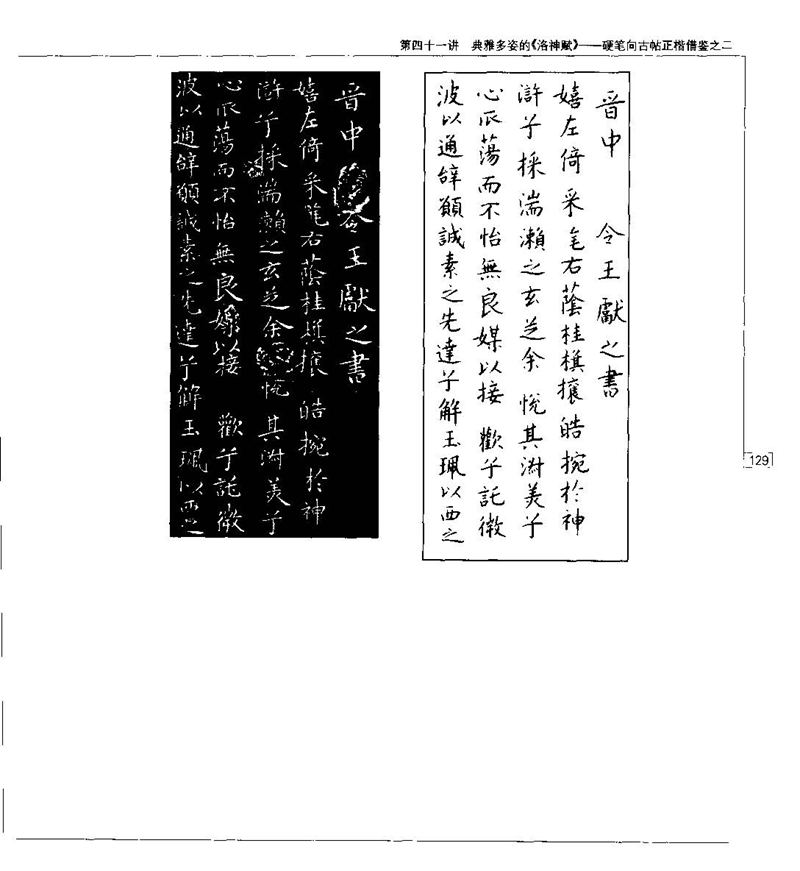 第四十一讲 典雅多姿的《洛神赋》——硬笔向古帖正楷借鉴之二
晉中 令王獻之書
嬉左倚采旄右蔭桂旗攘 皓捥於神
滸兮採湍瀨之玄芝余 悅其淑美兮
心𠂢蕩而不怡無良媒以接 歡兮託微
波以通辭願誠素之先達兮解玉珮以西之
晉中 令王獻之書
嬉左倚采旄右蔭桂旗攘 皓捥於神
滸兮採湍瀨之玄芝余 悅其淑美兮
心 蕩而不怡無良媒以接 歡兮託微
波以通辭願誠素之先達兮解玉珮以西之
129